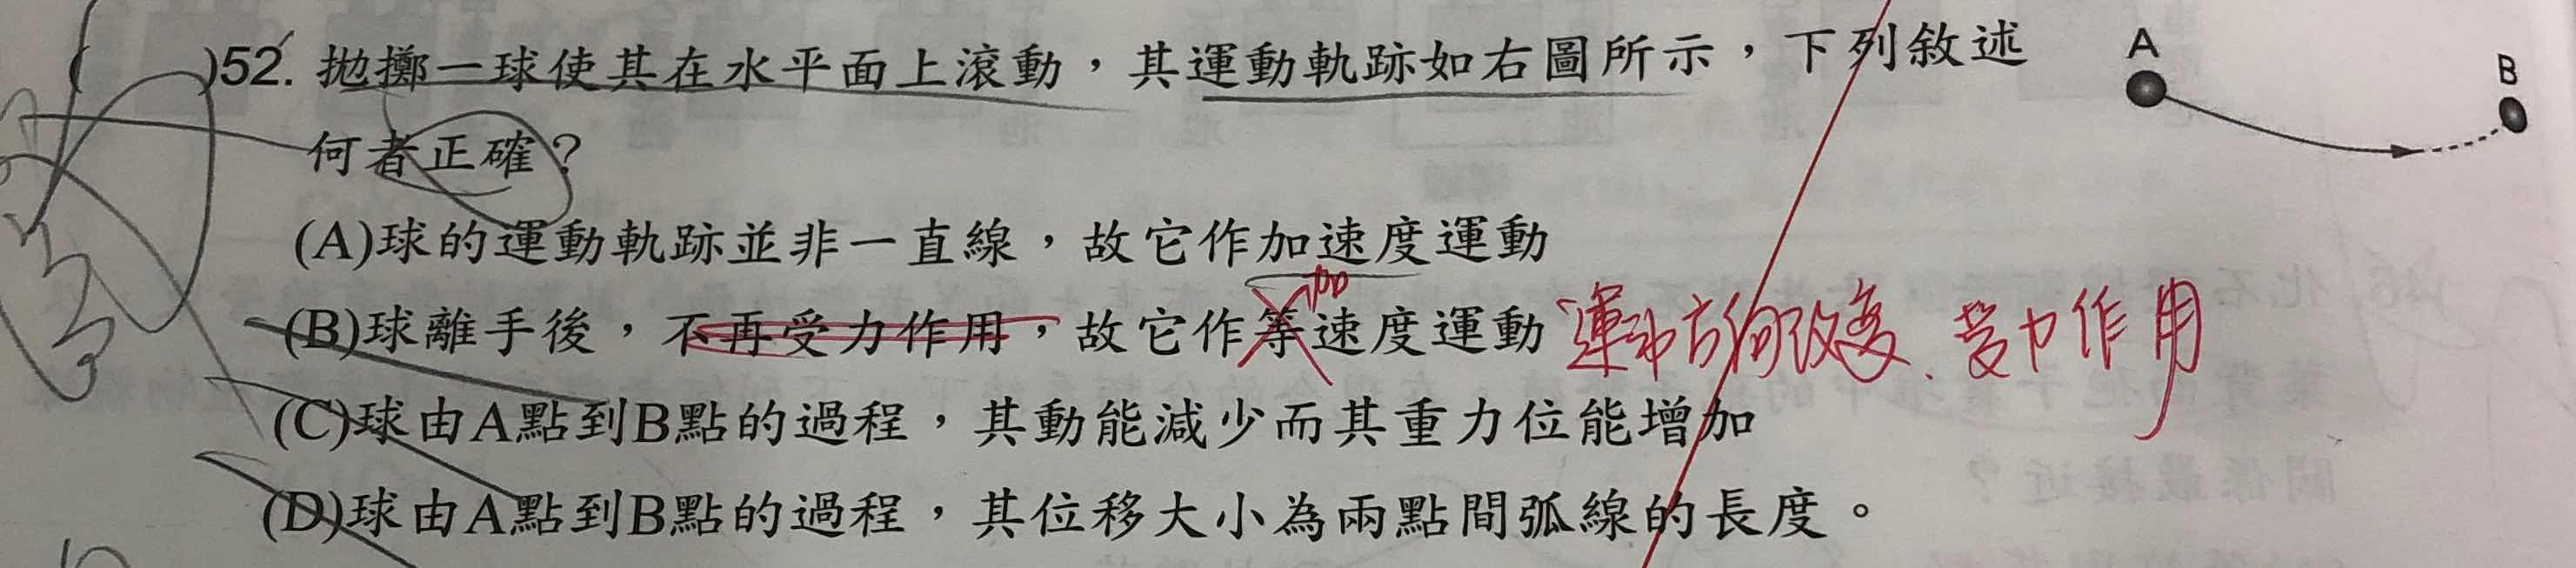 ( )52. 拋擲一球使其在水平面上滾動，其運動軌跡如右圖所示，下列敘述
何者正確？
A
B
(A)球的運動軌跡並非一直線，故它作加速度運動
加
(B)球離手後，不再受力作用，故它作等速度運動 運動方向改變、受力作用
(C)球由A點到B點的過程，其動能減少而其重力位能增加
(D)球由A點到B點的過程，其位移大小為兩點間弧線的長度。